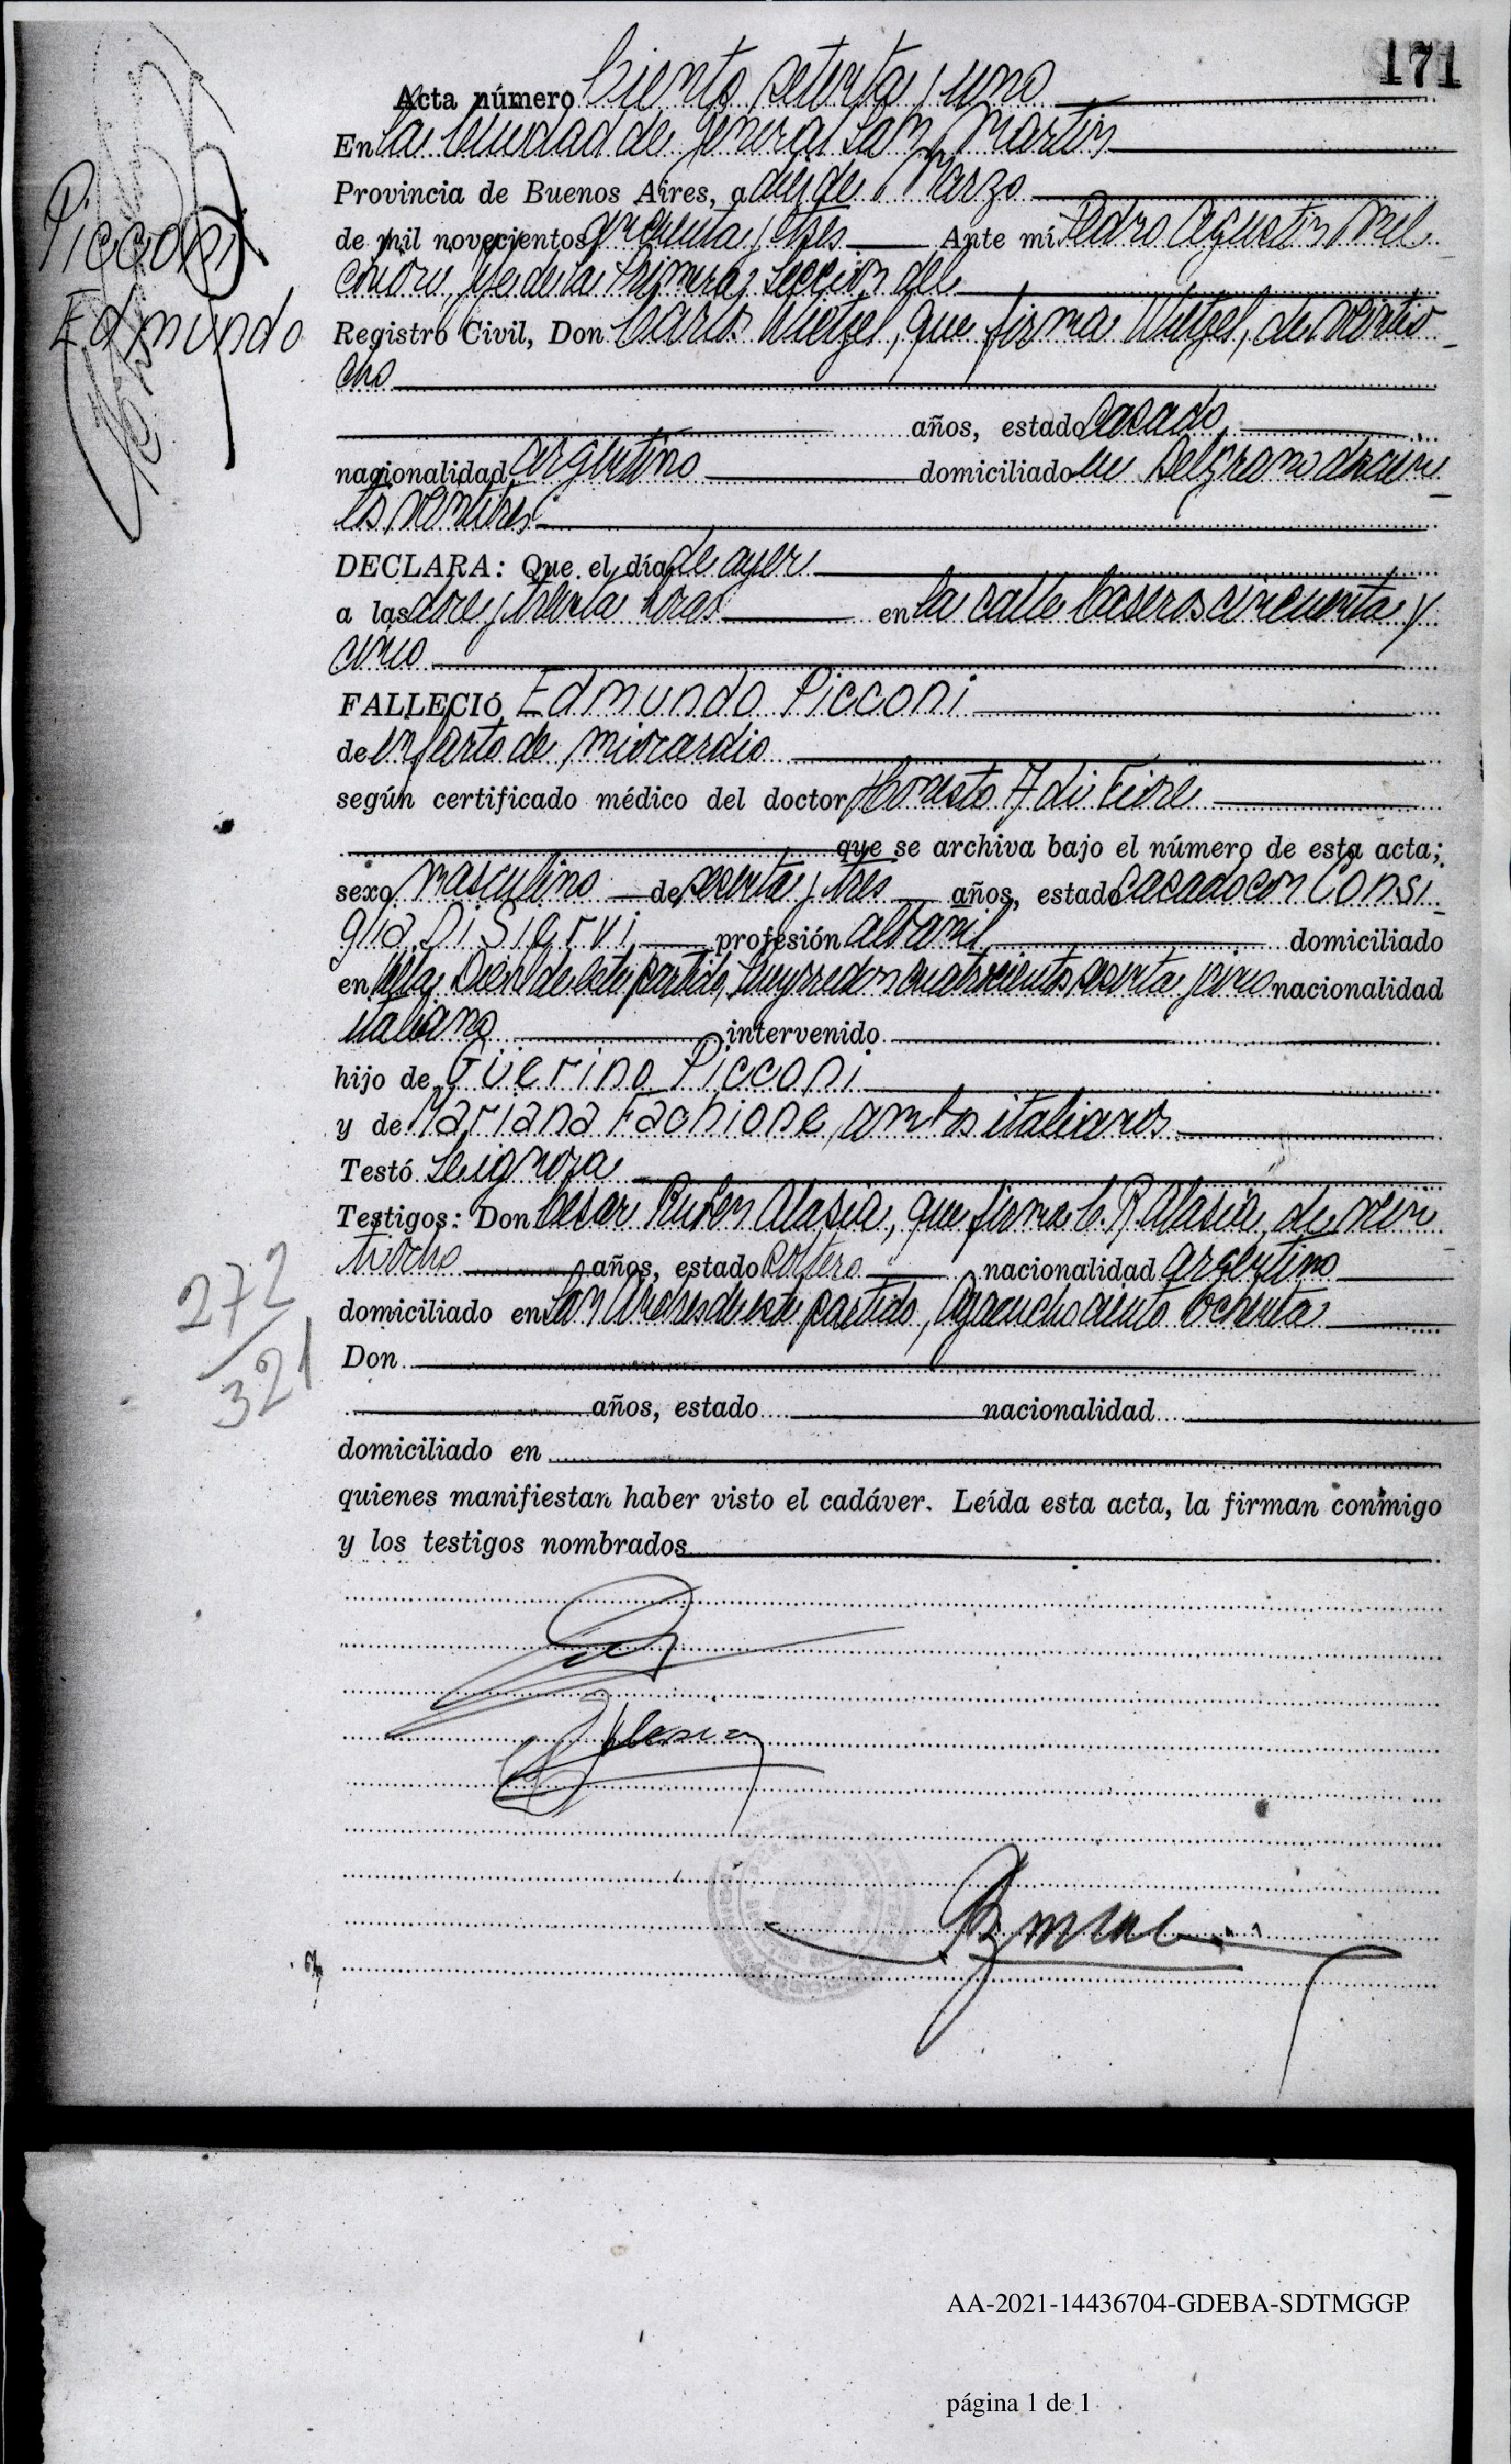 171
Acta número Ciento setenta y uno
En la Ciudad de General San Martín
Provincia de Buenos Aires, a diez de Marzo
de mil novecientos cincuenta y tres Ante mí Pedro Agustín Mel
chiore, Jefe de la Primera Sección del
Registro Civil, Don Carlos Witzel, que firma Witzel, de veintio
cho
años, estado casado,
nacionalidad argentino domiciliado en Belgrano
los veintitres
DECLARA: Que el día de ayer
a las doce y treinta horas en la calle Caseros cincuenta y
cinco
FALLECIÓ Edmundo Picconi
de infarto de miocardio
según certificado médico del doctor Honesto A di Fiore
que se archiva bajo el número de esta acta;
sexo masculino de sesenta y tres años, estado casado con Consi
glia Di Siervi, profesión albañil domiciliado
en Villa de este partido, cuatrocientos sesenta y cinco nacionalidad
italiano intervenido
hijo de Güerino Picconi
y de Mariana Fachione, ambos italianos
Testó Se ignora
Testigos: Don César Ruben Alasia, que firma C. R. Alasia, de vein
tiocho años, estado soltero nacionalidad argentino
domiciliado en San Andres de este partido, Ayacucho ciento ochenta
Don
años, estado nacionalidad
domiciliado en
quienes manifiestan haber visto el cadáver. Leída esta acta, la firman conmigo
y los testigos nombrados
Picconi
Edmundo
272
321
AA-2021-14436704-GDEBA-SDTMGGP
página 1 de 1